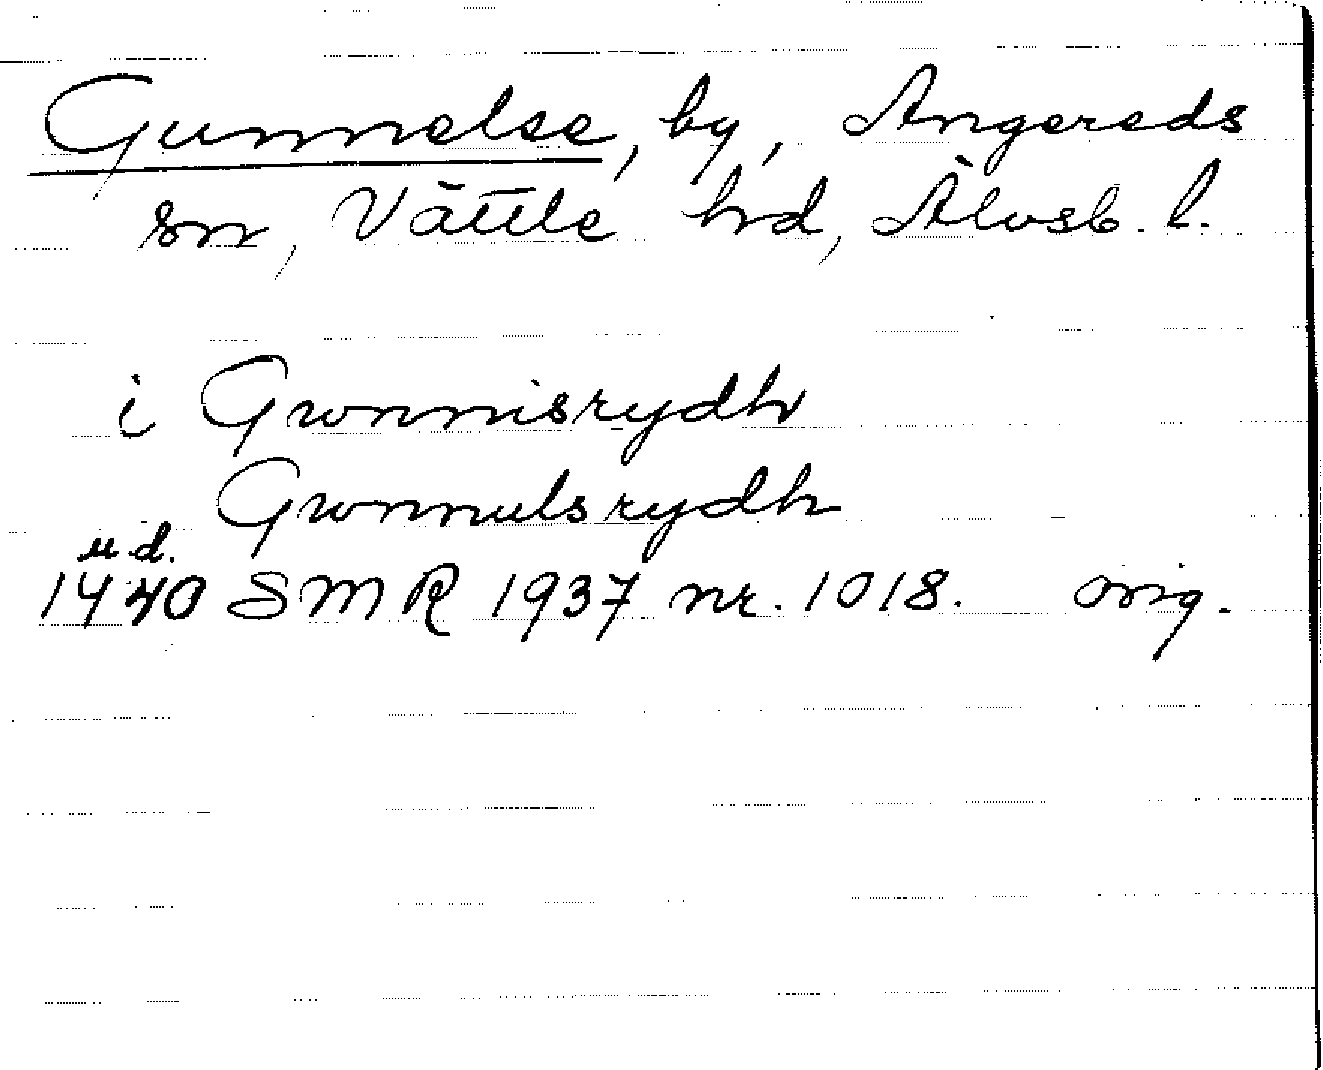 Gunnelse, by, Angereds
sn, Vättle hd, Älvsb. l.
i Gwnnisrydh
Gwnnulsrydh
u.d.
1440 SMR 1937 nr. 1018. orig.